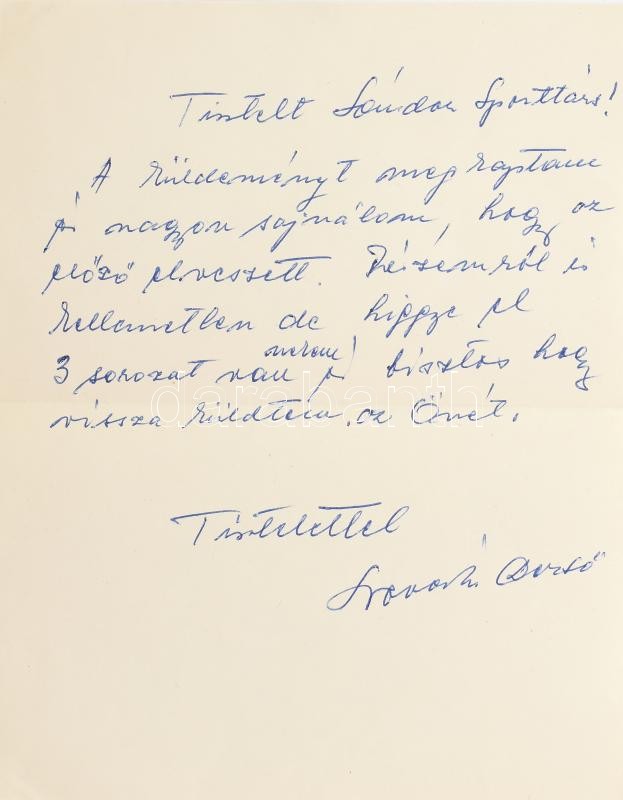 Tisztelt Sándor Sporttárs!
A küldeményt megkaptam
és nagyon sajnálom, hogy az
előző elveszett. Részemről is
kellemetlen de higgye el
3 sorozat van nekem és biztos hogy
vissza küldtem az Önét.
Tisztelettel
Dezső
darabanth